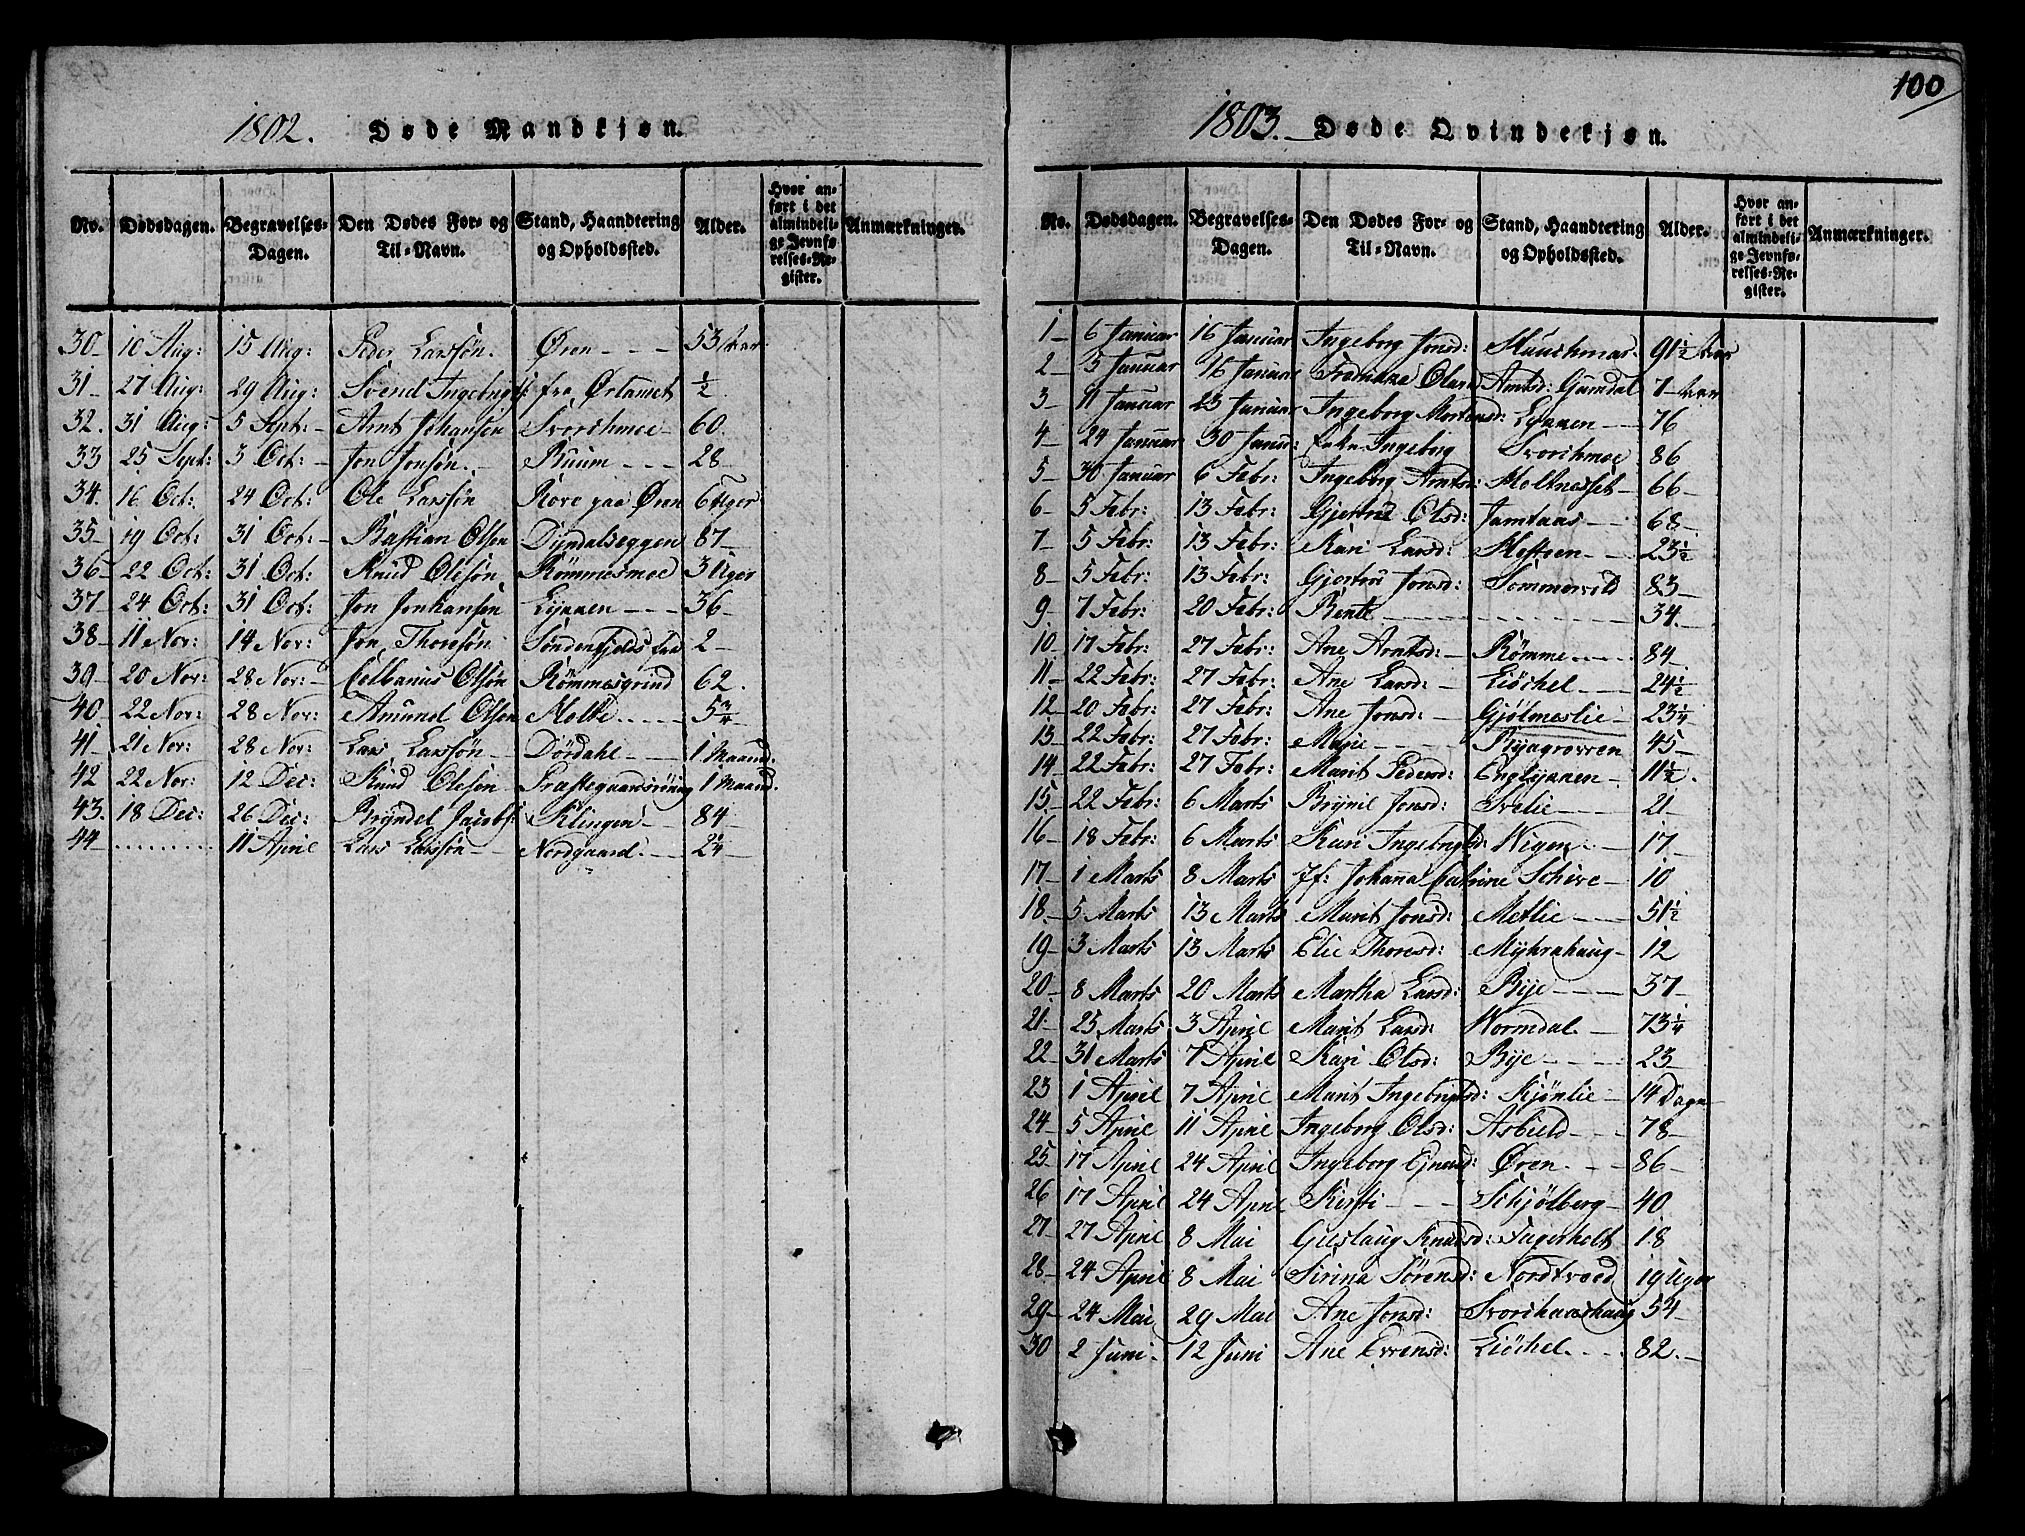 1802. Døde Mandkjøn.
No. Dødsdagen. Begravelses-Dagen. Den Dødes For- og Til-Navn. Stand, Haandtering og Opholdssted. Alder. Hvor anført i det almindelige Jevnførelses-Register. Anmærkninger.
30 10 Aug: 15 Aug: Peder Larssøn. Øren 53 Aar
31 27 Aug: 29 Aug: Svend Ingebrigts: fra Ørlamet ½
32. 31 Aug: 5 Sept: Arnt Johansen Svorchmoe 60
33 25 Sept: 3 Oct: Jon Jonsøn Ruum 28
34. 16 Oct: 24 Oct: Ole Larssøn Røre paa Øren 6 Uger
35 19 Oct: 31 Oct: Bastian Olsen Dyndalseggen 87
36 22 Oct: 31 Oct: Knud Olesøn Rømmesmoe 3 Uger
37 24 Oct: 31 Oct: Jon Jonhansen 36
38 11 Nov: 14 Nov: Jon Thoresøn Søndenfjelds fra 2
39 20 Nov: 28 Nov: Olsøn Rømmesgrind 62.
40 22 Nov: 28 Nov: Amund Olsen Molte 5¾
41 21 Nov: 28 Nov: Lars Larssøn Dørdahl 1 Maaned.
42 22 Nov: 12 Dec: Knud Olesøn 1 Maaned.
43. 18 Dec: 26 Dec: Bryndel Jacobs: Klingen 84
44 11 April Lars Larssøn Nordgaard 24
100
1803. Døde Qvindekjøn.
No. Dødsdagen. Begravelses-Dagen. Den Dødes For- og Til-Navn. Stand, Haandtering og Opholdssted. Alder. Hvor anført i det almindelige Jevnførelses-Register. Anmærkninger.
1 6 Januar 16 Januar Ingeborg Jonsd: 91½ Aar
2 5 Januar 16 Januar Olsd Arntsd: Gumdal 7 Aar
3 11 Januar 23 Januar Ingeborg Mortensd: 76
4 24 Januar 30 Janu: Enke Ingeborg Svorchmoe 86
5 30 Januar 6 Febr: Ingeborg Arntsd: Holtnesset 66
6 5 Febr: 13 Febr: Gjertrud Olsd: Jamtaas 68
7 5 Febr: 13 Febr: Kari Larsd: Hosteen 23½
8 5 Febr: 13 Febr: Gjertrud Jonsd: Sommervold 83
9 7 Febr: 20 Febr: Bente 34
10 17 Febr: 27 Febr: Ane Arntsd: Rømme 84
11 22 Febr: 27 Febr: Ane Larsd: Liøchel 24½
12 20 Febr: 27 Febr: Ane Jonsd: Gjølmeslie 23¼
13 22 Febr: 27 Febr: Marie 45
14 22 Febr: 27 Febr: Marit Pedersd: 11½
15 22 Febr: 6 Marts Brynil Jonsd: Svelie 21
16 18 Febr: 6 Marts Kari Ingebrigtsd: Wigen 17
17 1 Marts 8 Marts Jf: Johanna Cathrine Schive 10
18 5 Marts 13 Marts Marit Jonsd: Metlie 51½
19 3 Marts 13 Marts Elie Thoresd: Myhrahaug 12
20 8 Marts 20 Marts Martha Larsd: Bye 37
21 25 Marts 3 April Marit Larsd: Wormdal 73¼
22 31 Marts 7 April Kari Olsd: Bye 23
23 1 April 7 April Marit Ingebrigtsd: Kjønlie 14 Dage
24 5 April 11 April Ingeborg Olsd: Asbield 78
25 17 April 24 April Ingeborg Ejnersd: Øren 86
26 17 April 24 April Kirsti Schjølberg 40
27 27 April 8 Mai Gieslaug Knudsd: Fagerholt 18
28 24 April 8 Mai Sirina Sørensd: Nordtvoed 19 Uger
29 24 Mai 29 Mai Ane Jonsd: Svorchaashaug 54
30 2 Juni 12 Juni Ane Evensd: Liøchel 82.